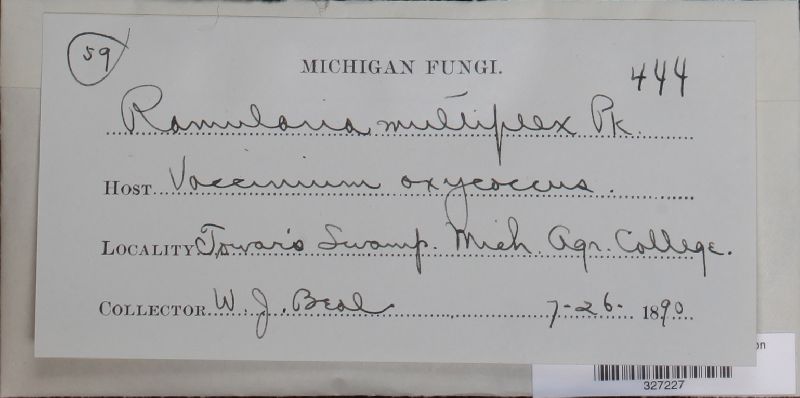 59
MICHIGAN FUNGI.
444
Ramularia multiplex Pk.
HOST Vaccinium oxycoccus.
LOCALITY Towar's Swamp. Mich. Agr. College.
COLLECTOR W. J. Beal 7-26-1890
327227